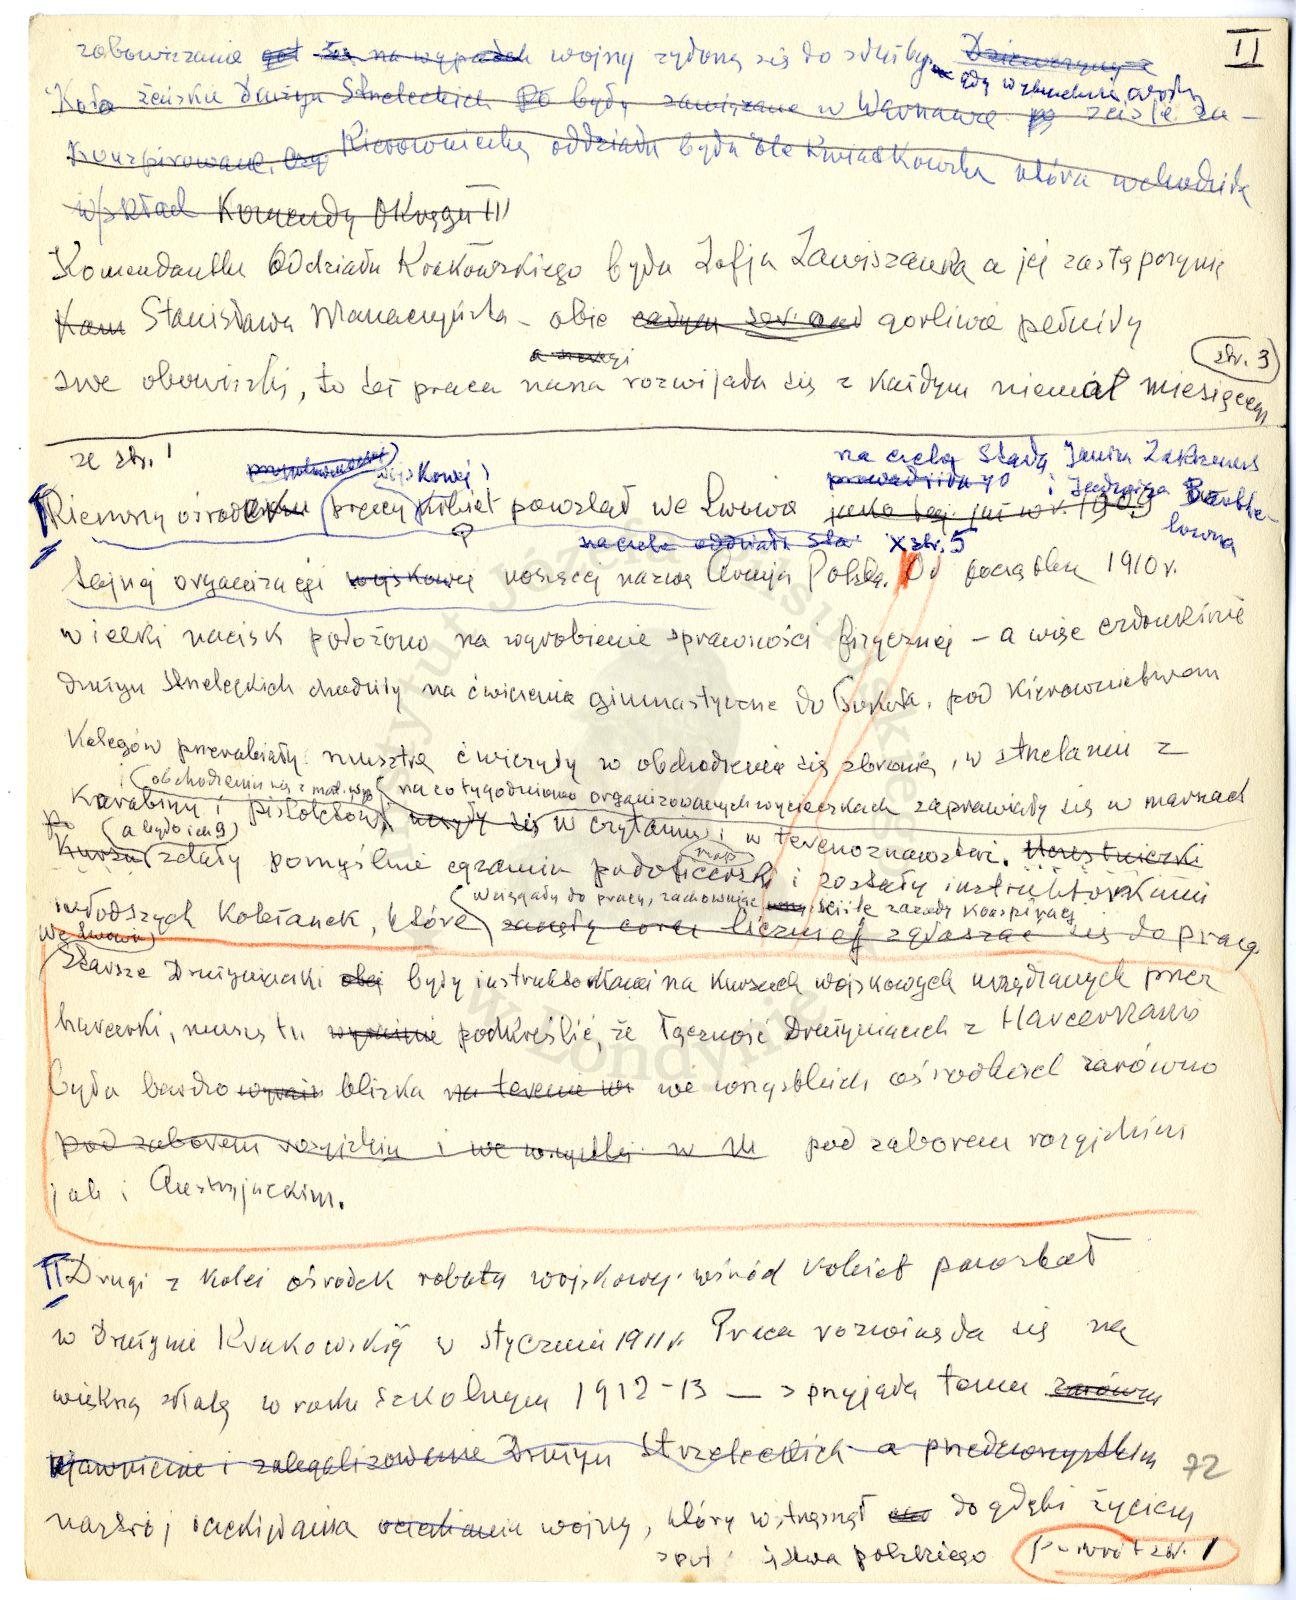 II
zobowiązanie że na wypadek wojny wojny zgłoszą się do służby
gdy wybuchnie
Koła żeńskie Drużyn Strzeleckich były zawiązane w Warszawie ściśle za-
konspirowane, Kierowniczką oddziału była Kwiatkowska która wchodziła
w skład Komendy Okręgu III
Komendantką Oddziału Krakowskiego była Zofja Zawiszanka a jej zastępczynią
Kom Stanisława - obie gorliwie pełniły
str. 3
swe obowiązki, to też praca nasza rozwijała się z każdym niemal miesiącem
ze str. 1
na czele stały Janina
prowadziła go i Jadwiga
wojskowej
Pierwszy ośrodek pracy kobiet powstał we Lwowie jako taj. już w r. 1909
na czele oddziału sta X str. 5
tajnej organizacji wojskowej noszącej nazwę Armja Polska. Od początku 1910 r.
wielki nacisk położono na wyrobienie sprawności fizycznej - a więc członkinie
drużyn strzeleckich chodziły na ćwiczenia gimnastyczne do Sokoła, pod kierownictwem
kolegów przerabiały musztrę ćwiczyły w obchodzeniu się z bronią, w strzelaniu z
i obchodzeniu się z mat. wyb na cotygodniowo organizowanych wycieczkach zaprawiały się w marszach
karabiny i pistoletów, uczyły się w czytaniu i w terenoznawstwie. Uczestniczki
(a było ich 9) map
Kursu zdały pomyślnie egzamin podoficerski i zostały instruktorkami
wciągały do pracy, zachowując ściśle zasady konspiracji
młodszych koleżanek, które zaczęły coraz liczniej zgłaszać się do pracy
We Lwowie
Starsze Drużyniaczki były instruktorkami na kursach wojskowych urządzanych przez
harcerki, muszę tu podkreślić, że łączność Drużyniaczek z Harcerkami
była bardzo blizka na terenie we wszystkich ośrodkach zarówno
pod zaborem rosyjskim i we wszystki w pod zaborem rosyjskim
jak i Austryjackim.
II Drugi z kolei ośrodek roboty wojskowej wśród kobiet powstał
w Drużynie Krakowskiej w styczniu 1911 r. Praca rozwinęła się na
większą skalę w roku szkolnym 1912-13 — sprzyjała temu zarówno
ujawnienie i zalegalizowanie Drużyn Strzeleckich a przedewszystkim
72
nastrój oczekiwania wojny, który wstrząsał do głębi życiem
społ wa polskiego
powrót str. 1